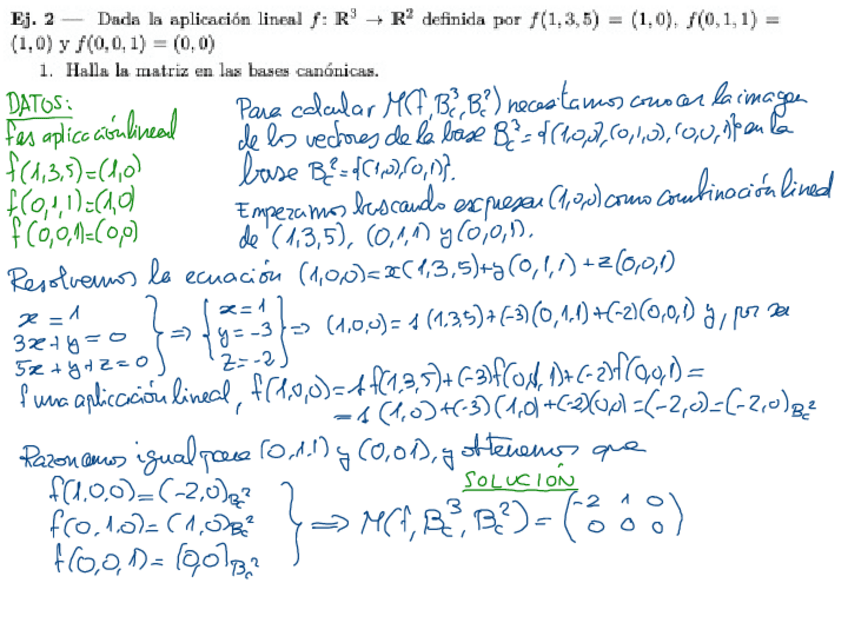 Ej. 2 — Dada la aplicación lineal f: R³ → R² definida por f(1,3,5) = (1,0), f(0,1,1) =
(1,0) y f(0,0,1) = (0,0)
1. Halla la matriz en las bases canónicas.
DATOS:
f es aplicación lineal
f(1,3,5)=(1,0)
f(0,1,1)=(1,0)
f(0,0,1)=(0,0)
Para calcular M(f,B_c³,B_c²) necesitamos conocer la imagen
de los vectores de la base B_c³={(1,0,0),(0,1,0),(0,0,1)} en la
base B_c²={(1,0),(0,1)}.
Empezamos buscando expresar (1,0,0) como combinación lineal
de (1,3,5), (0,1,1) y (0,0,1).
Resolvemos la ecuación (1,0,0)=x(1,3,5)+y(0,1,1)+z(0,0,1)
x = 1
3x+y = 0
5x+y+z=0
} ⇒ { x=1
y=-3
z=-2
} ⇒ (1,0,0)=1(1,3,5)+(-3)(0,1,1)+(-2)(0,0,1) y, por ser
f una aplicación lineal, f(1,0,0)=1f(1,3,5)+(-3)f(0,1,1)+(-2)f(0,0,1)=
=1(1,0)+(-3)(1,0)+(-2)(0,0)=(-2,0)=(-2,0)_{B_c²}
Razonamos igual para (0,1,1) y (0,0,1), y obtenemos que
f(1,0,0)=(-2,0)_{B_c²}
f(0,1,0)=(1,0)_{B_c²}
f(0,0,1)=(0,0)_{B_c²}
SOLUCIÓN
} ⇒ M(f,B_c³,B_c²)=(-2 1 0
0 0 0)